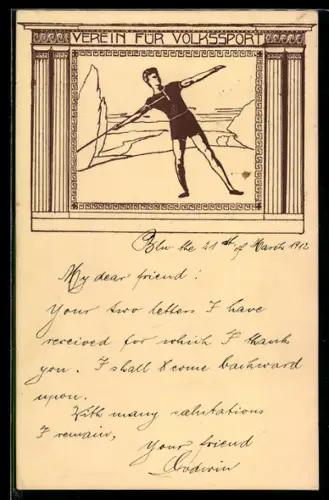 VEREIN FÜR VOLKSSPORT
Bln the 21st of March 1912
My dear friend:
Your two letters I have
received for which I thank
you. I shall come backward
upon.
With many salutations
I remain,
Your friend
Godwin